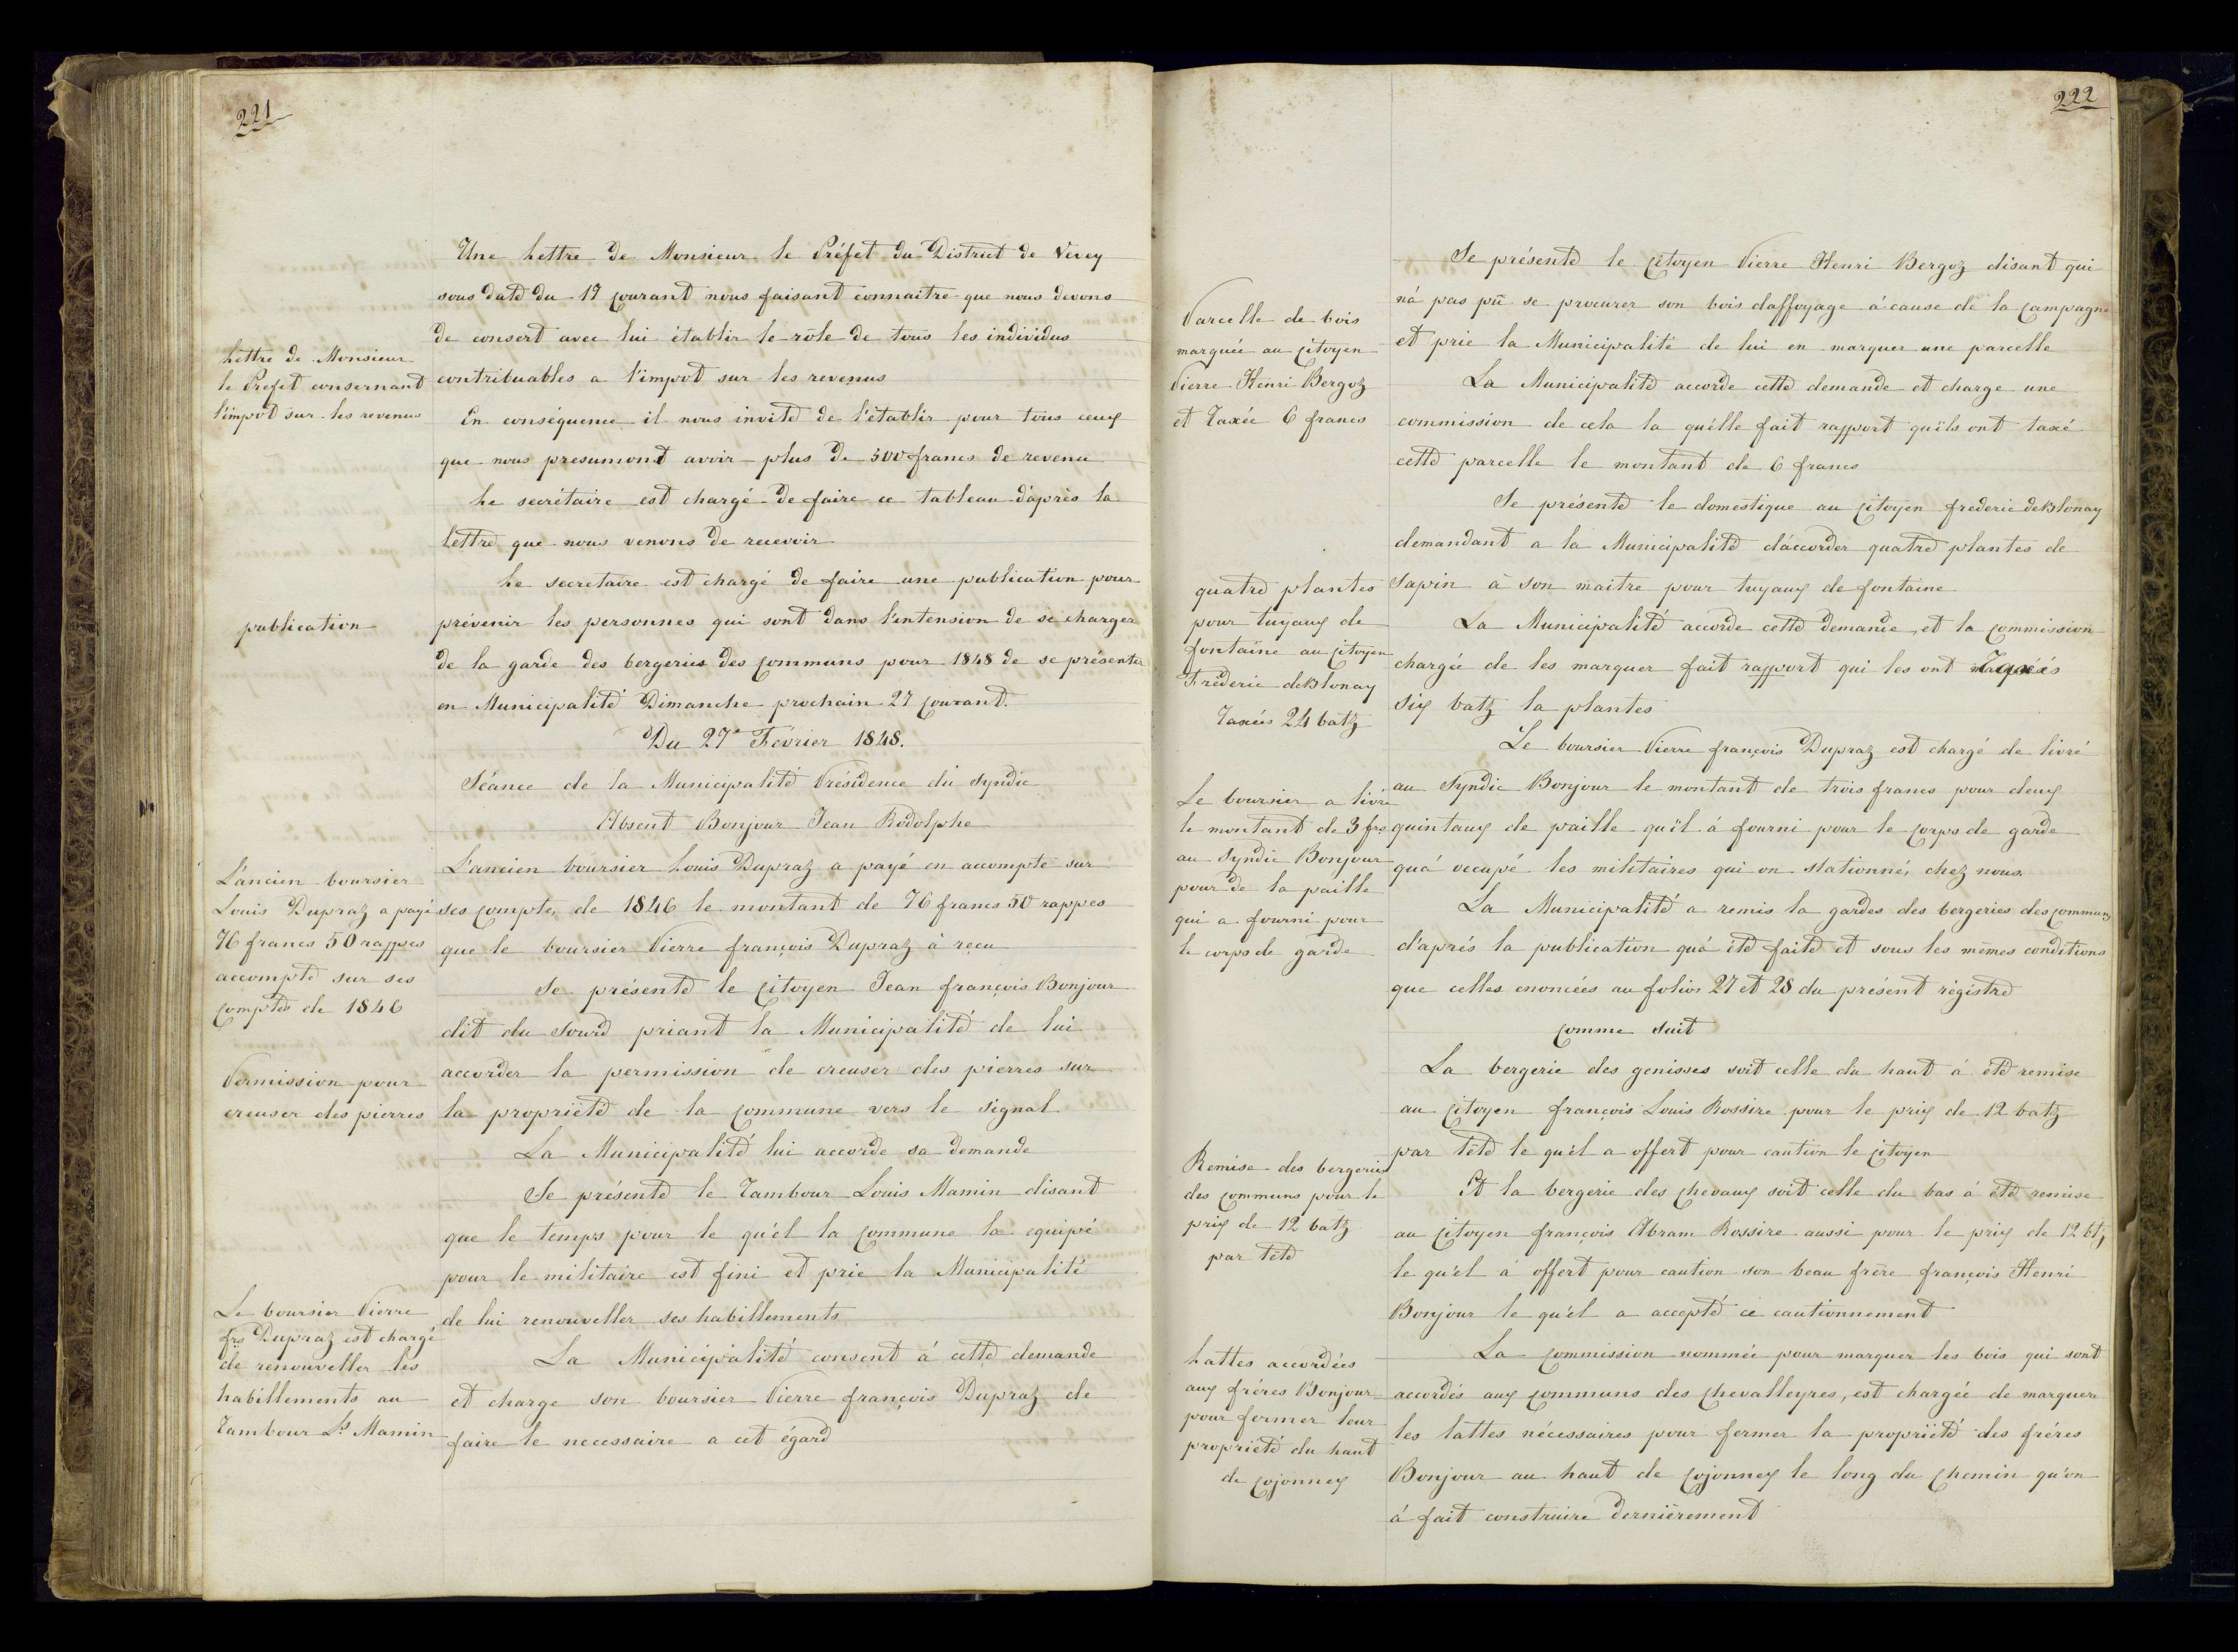 221
Une Lettre de Monsieur le Préfet du District de Vevey
sous date du 19 courant nous faisant connaitre que nous devons
de consert avec lui établir le rôle de tous les individus
contribuables a l'impot sur les revenus
En conséquence il nous invite de l'établir pour tous ceux
que nous presumont avoir plus de 500 francs de revenu
Le secrétaire est chargé de faire ce tableau d'après la
Lettre que nous venons de recevoir
Le secretaire est chargé de faire une publication pour
prévenir les personnes qui sont dans l'intension de se charger
de la garde des bergeries des communs pour 1848 de se présenter
en Municipalité Dimanche prochain 27 courant.
Du 27e Février 1848.
Séance de la Municipalité Présidence du Syndic
Absent Bonjour Jean Rodolphe
L'ancien boursier Louis Dupraz a payé en accompte sur
ses compte, de 1846 le montant de 76 francs 50 rappes
que le boursier Pierre françois Dupraz à reçu
Se présente le citoyen Jean françois Bonjour
dit du Sourd priant la Municipalité de lui
accorder la permission de creuser des pierres sur
la propriété de la commune vers le signal
La Municipalité lui accorde sa demande
Se présente le Tambour Louis Mamin disant
que le temps pour le qu'él la commune la equipé
pour le militaire est fini et prie la Municipalité
de lui renouveller ses habillements
La Municipalité consent á cette demande
et charge son boursier Pierre françois Dupraz de
faire le necessaire a cet égard
Lettre de Monsieur
le Prefet consernant
l'impot sur les revenus
publication
L'ancien boursier
Louis Dupraz a payé
76 francs 50 rappes
accompte sur ses
comptes de 1846
Permission pour
creuser des pierres
Le boursier Pierre
frs Dupraz est chargé
de renouveller les
habillements au
Tambour Ls Mamin
222
Se présente le citoyen Pierre Henri Bergoz disant qui
n'á pas pû se procurer son bois daffoyage á cause de la campagne
et prie la Municipalité de lui en marquer une parcelle
La Municipalité accorde cette demande et charge une
commission de cela la qu'élle fait rapport qu'ils ont taxé
cette parcelle le montant de 6 francs
Se présente le domestique au citoyen frederic deBlonay
demandant a la Municipalité d'accorder quatre plantes de
Sapin à son maitre pour tuyaux de fontaine
La Municipalité accorde cette demande, et la commission
chargée de les marquer fait rapport qui les ont Taxées
six batz la plantes
Le boursier Pierre françois Dupraz est chargé de livré
au Syndic Bonjour le montant de trois francs pour deux
quintaux de paille qu'il á fourni pour le corps de garde
qu'á occupé les militaires qui on stationné, chez nous.
La Municipalité a remis la gardes des bergeries des communs
d'aprés la publication qu'á été faite et sous les mêmes conditions
que celles enoncées au folios 27 et 28 du présent régistre
comme suit
La bergerie des genisses soit celle du haut á été remise
au citoyen françois Louis Rossire pour le prix de 12 batz
par tête le qu'él a offert pour caution le citoyen
Et la bergerie des chevaux soit celle du bas á été remise
au citoyen françois Abram Rossire aussi pour le prix de 12 btz
le qu'él á offert pour caution son beau frère françois Henri
Bonjour le qu'él a accepté ce cautionnement
La commission nommée pour marquer les bois qui sont
accordés aux communs des chevalleyres, est chargée de marquer
les lattes nécessaires pour fermer la propriété des fréres
Bonjour au haut de cojonnex le long du chemin qu'on
á fait construire dernièrement
Parcelle de bois
marquée au citoyen
Pierre Henri Bergoz
et Taxée 6 francs
quatre plantes
pour tuyaux de
fontaine au citoyen
Frederic deBlonay
Taxées 24 batz
Le boursier a livré
le montant de 3 frs
au Syndic Bonjour
pour de la paille
qui a fourni pour
le corps de garde
Remise des bergeries
des communs pour le
prix de 12 batz
par tête
Lattes accordées
aux fréres Bonjour
pour fermer leur
propriété du haut
de cojonnex